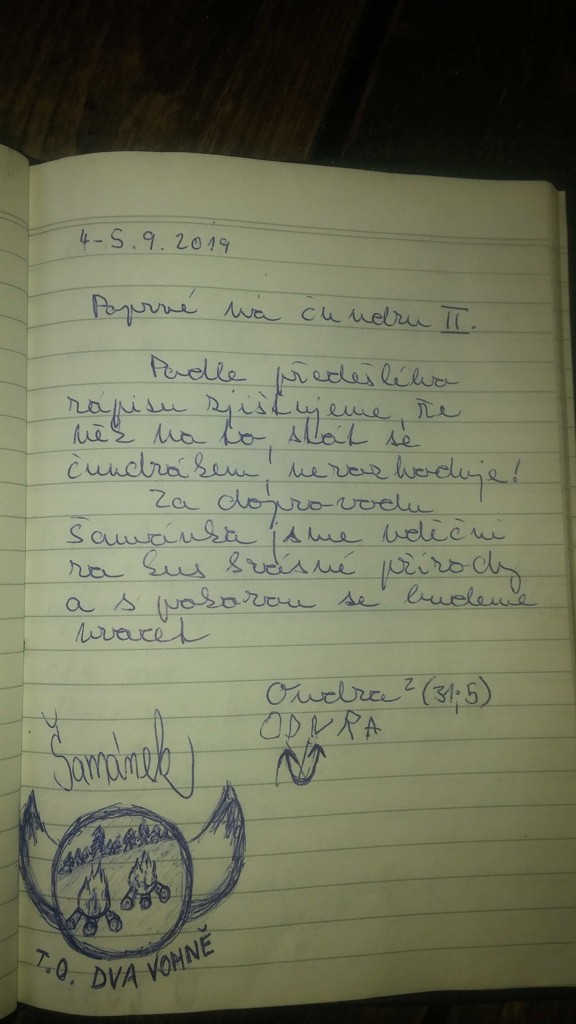 4-5.9.2019
Poprvé na čundru II.
Podle předešlého
zápisu zjišťujeme, že
věz na to, stát se
čundrákem, nerozhoduje!
Za doprovodu
Šamánka jsme vděční
za kus krásné přírody
a s pokorou se budeme
vracet
Ondra² (31;5)
ODNRA
Šamánek
T.O. DVA VOHNĚ